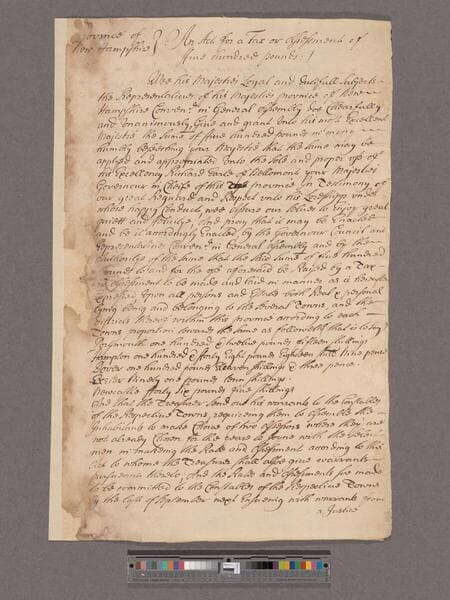 Province of New Hampshire } An Act for a Tax or Assessment of
five hundred pounds:/
Wee his Majesties Loyal and dutifull subjects
the Representatives of his Majesties province of New
Hampshire Conven'd in General Assembly doe Chearfully
and Unanimously Give and grant Unto his most Excellent
Majestie the Sume of five hundred pounds in money
humbly beseeching your Majestie that the same may be
applyed and appropriated Unto the Sole and proper use of
his Excellency Richard Earle of Bellomont your Majesties
Governour in Cheife of this province In Testimony of
our great Reguard and Respect unto his Lordshipp under
whose happy Conduct wee assure our selves to Enjoy great
quiett and pray that it may be Enacted
and be it accordingly Enacted by the Governour Council and
Representatives Conven'd in General Assembly and by the
authority of the same that the said Sume of five hundred
pounds to and for the use aforesaid be Raised by a Tax
or Assessment to be made and laid in manner as is hereafter
Expressed Upon all persons and Estates both Real & personal
Lying being and belonging to the several Towns and the
districts thereof within this province according to each
Towns proportion towards the same as followeth that is to say
Portsmouth one hundred & twelve pounds fifteen shillings
Hampton one hundred & forty Eight pounds Eighteen shill: Nine pence
Dover one hundred pounds Eleaven shillings & three pence
Exeter Ninety one pounds tenn shillings
Newcastle forty six pounds five shillings
And that the Treasurer send out his warrants to the Constables
of the Respective Towns, requireing them to assemble the
Inhabitants to make Choice of two assessors where they are
not already Chosen for the yeare to joyne with the selec
men in makeing the Rate and assessment according to this
Act to whome the Treasurer shall allso give warrants
pursuant hereto, and the Rate and Assessments soe made
to be committed to the Constables of the Respective Towns
by the last of September next Ensueing with warrants from
a Justice